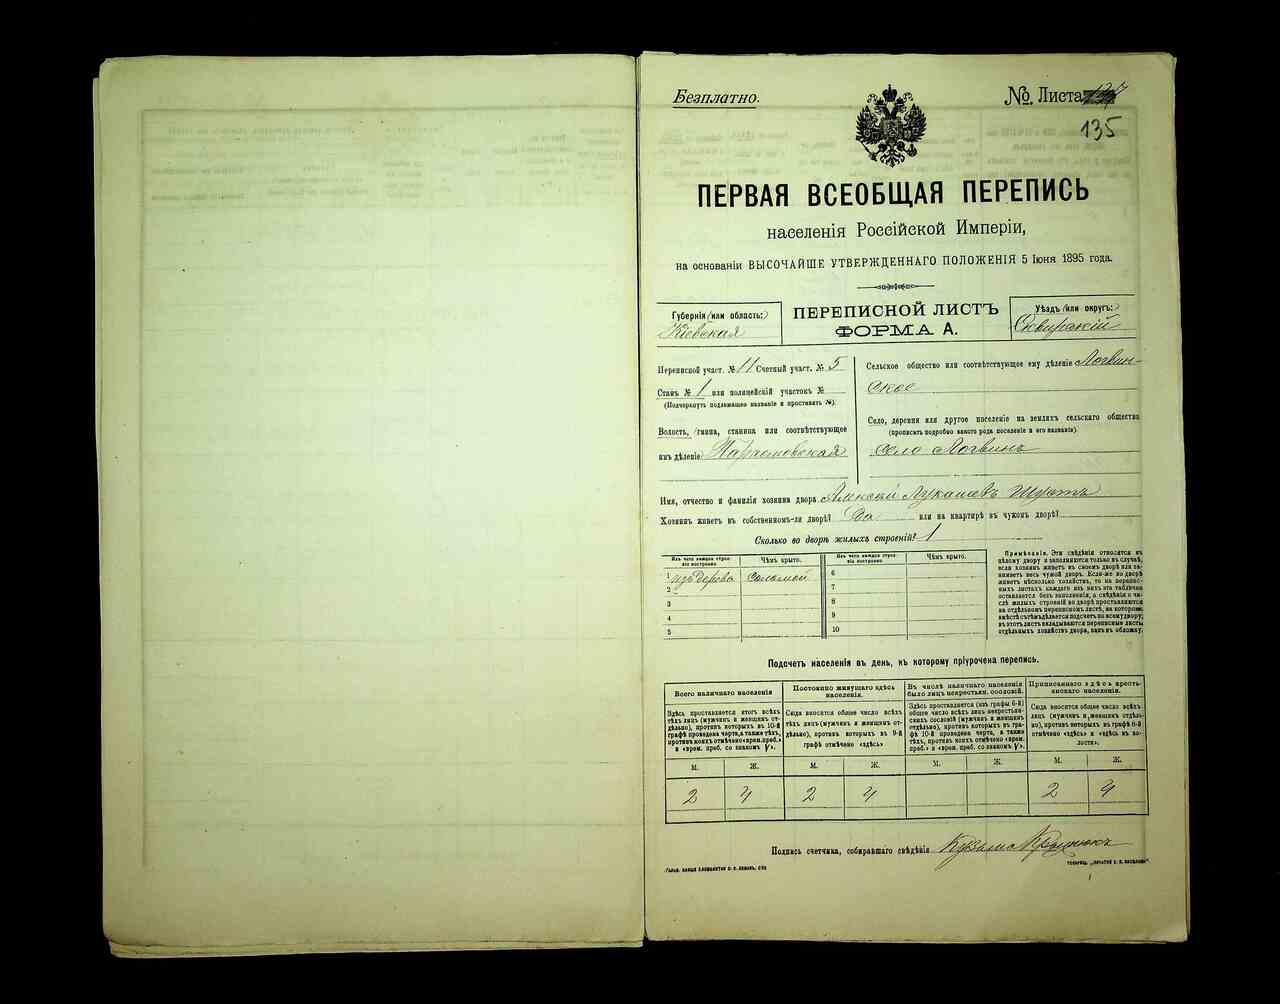 Безплатно.
№. Листа
135
ПЕРВАЯ ВСЕОБЩАЯ ПЕРЕПИСЬ
населенія Россійской Имперіи,
на основаніи ВЫСОЧАЙШЕ УТВЕРЖДЕННАГО ПОЛОЖЕНІЯ 5 Іюня 1895 года.
Губернія (или область:)
Кіевская
ПЕРЕПИСНОЙ ЛИСТЪ
ФОРМА А.
Уѣздъ (или округъ:)
Сквирскій
Переписной участ. № 11 Счетный участ. № 5
Станъ № 1 или полицейскій участокъ №
(Подчеркнуть подлежащее названіе и проставить №).
Волость, (гмина, станица или соотвѣтствующее
имъ дѣленіе)
Сельское общество или соотвѣтствующее ему дѣленіе Логвин-
ское
Село, деревня или другое поселеніе на земляхъ сельскаго общества
(прописать подробно какого рода поселеніе и его названіе).
село Логвинъ
Имя, отчество и фамилія хозяина двора Алексѣй Лукашевъ Шустъ
Хозяинъ живетъ въ собственномъ-ли дворѣ? Да или на квартирѣ въ чужомъ дворѣ?
Сколько во дворѣ жилыхъ строеній? 1
Изъ чего каждое строеніе построено
Чѣмъ крыто.
Изъ чего каждое строеніе построено
Чѣмъ крыто.
1 изъ дерева соломой
2
3
4
5
6
7
8
9
10
Примѣчаніе. Эти свѣдѣнія относятся къ
цѣлому двору и заполняются только въ случаѣ,
если хозяинъ живетъ въ своемъ дворѣ или занимаетъ весь чужой дворъ. Если-же во дворѣ
живетъ нѣсколько хозяйствъ, то на переписныхъ листахъ каждаго изъ нихъ эта табличка
оставляется безъ заполненія, а свѣдѣнія о числѣ жилыхъ строеній во дворѣ проставляются
на отдѣльномъ переписномъ листѣ, на которомъ
вмѣстѣ съ тѣмъ дѣлается подсчетъ по всему двору;
въ этотъ листъ вкладываются переписные листы
отдѣльныхъ хозяйствъ двора, какъ въ обложку.
Подсчетъ населенія въ день, къ которому пріурочена перепись.
Всего наличнаго населенія
Постоянно живущаго здѣсь населенія.
Въ числѣ наличнаго населенія было лицъ некрестьян. сословій.
Приписаннаго здѣсь крестьянскаго населенія.
Здѣсь проставляется итогъ всѣхъ
тѣхъ лицъ (мужчинъ и женщинъ отдѣльно), противъ которыхъ въ 10-й
графѣ проведена черта, а также тѣхъ,
противъ коихъ отмѣчено «врем. преб.»
и «врем. преб. со знакомъ V».
Сюда вносится общее число всѣхъ
тѣхъ лицъ (мужчинъ и женщинъ отдѣльно), противъ которыхъ въ 9-й
графѣ отмѣчено «здѣсь»
Здѣсь проставляется (изъ графы 6-й)
общее число всѣхъ лицъ некрестьянскихъ сословій (мужчинъ и женщинъ
отдѣльно), противъ которыхъ въ графѣ 10-й проведена черта, а также
тѣхъ, противъ коихъ отмѣчено «врем.
преб.» и «врем. преб. со знакомъ V»
Сюда вносится общее число всѣхъ
лицъ (мужчинъ и женщинъ отдѣльно), противъ которыхъ въ графѣ 8-й
отмѣчено «здѣсь» и «здѣсь въ волости».
М. Ж. М. Ж. М. Ж. М. Ж.
2 4 2 4 2 4
Подпись счетчика, собиравшаго свѣдѣнія Кузьма